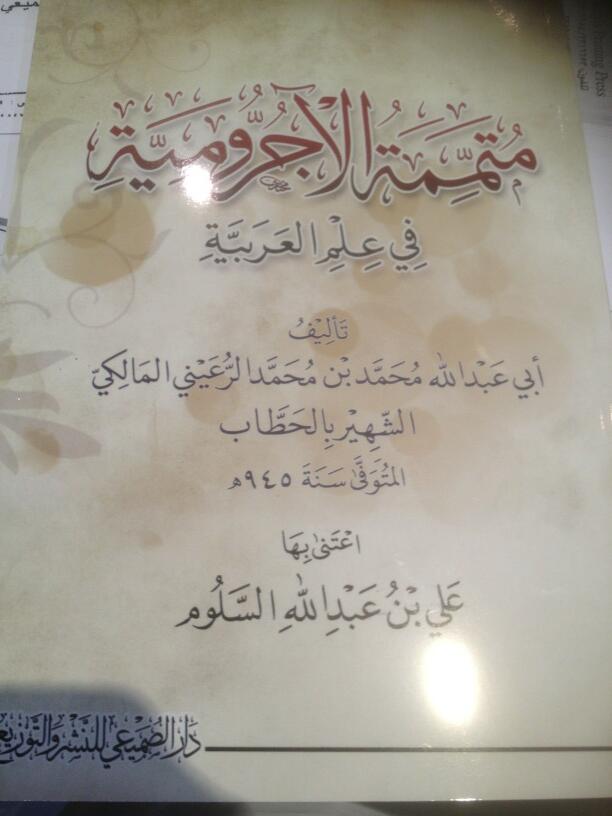 مُتَمِّمَةُ الْآجُرُّومِيَّةِ
فِي عِلْمِ العَرَبيَّةِ
تَأليْفُ
أبي عَبْدِ اللّٰه مُحَمَّد بْن مُحَمَّد الرُّعَيْني المَالِكيّ
الشّهِيْر بِالحَطَّاب
المُتَوَفّىٰ سَنَةَ ٩٤٥ھ
اعْتَنىٰ بِهَا
عَلي بْنُ عَبْدِ اللّٰهِ السَّلُوم
دَارُ الصُّمَيْعِي للنَّشْرِ وَالتَّوْزِيعِ